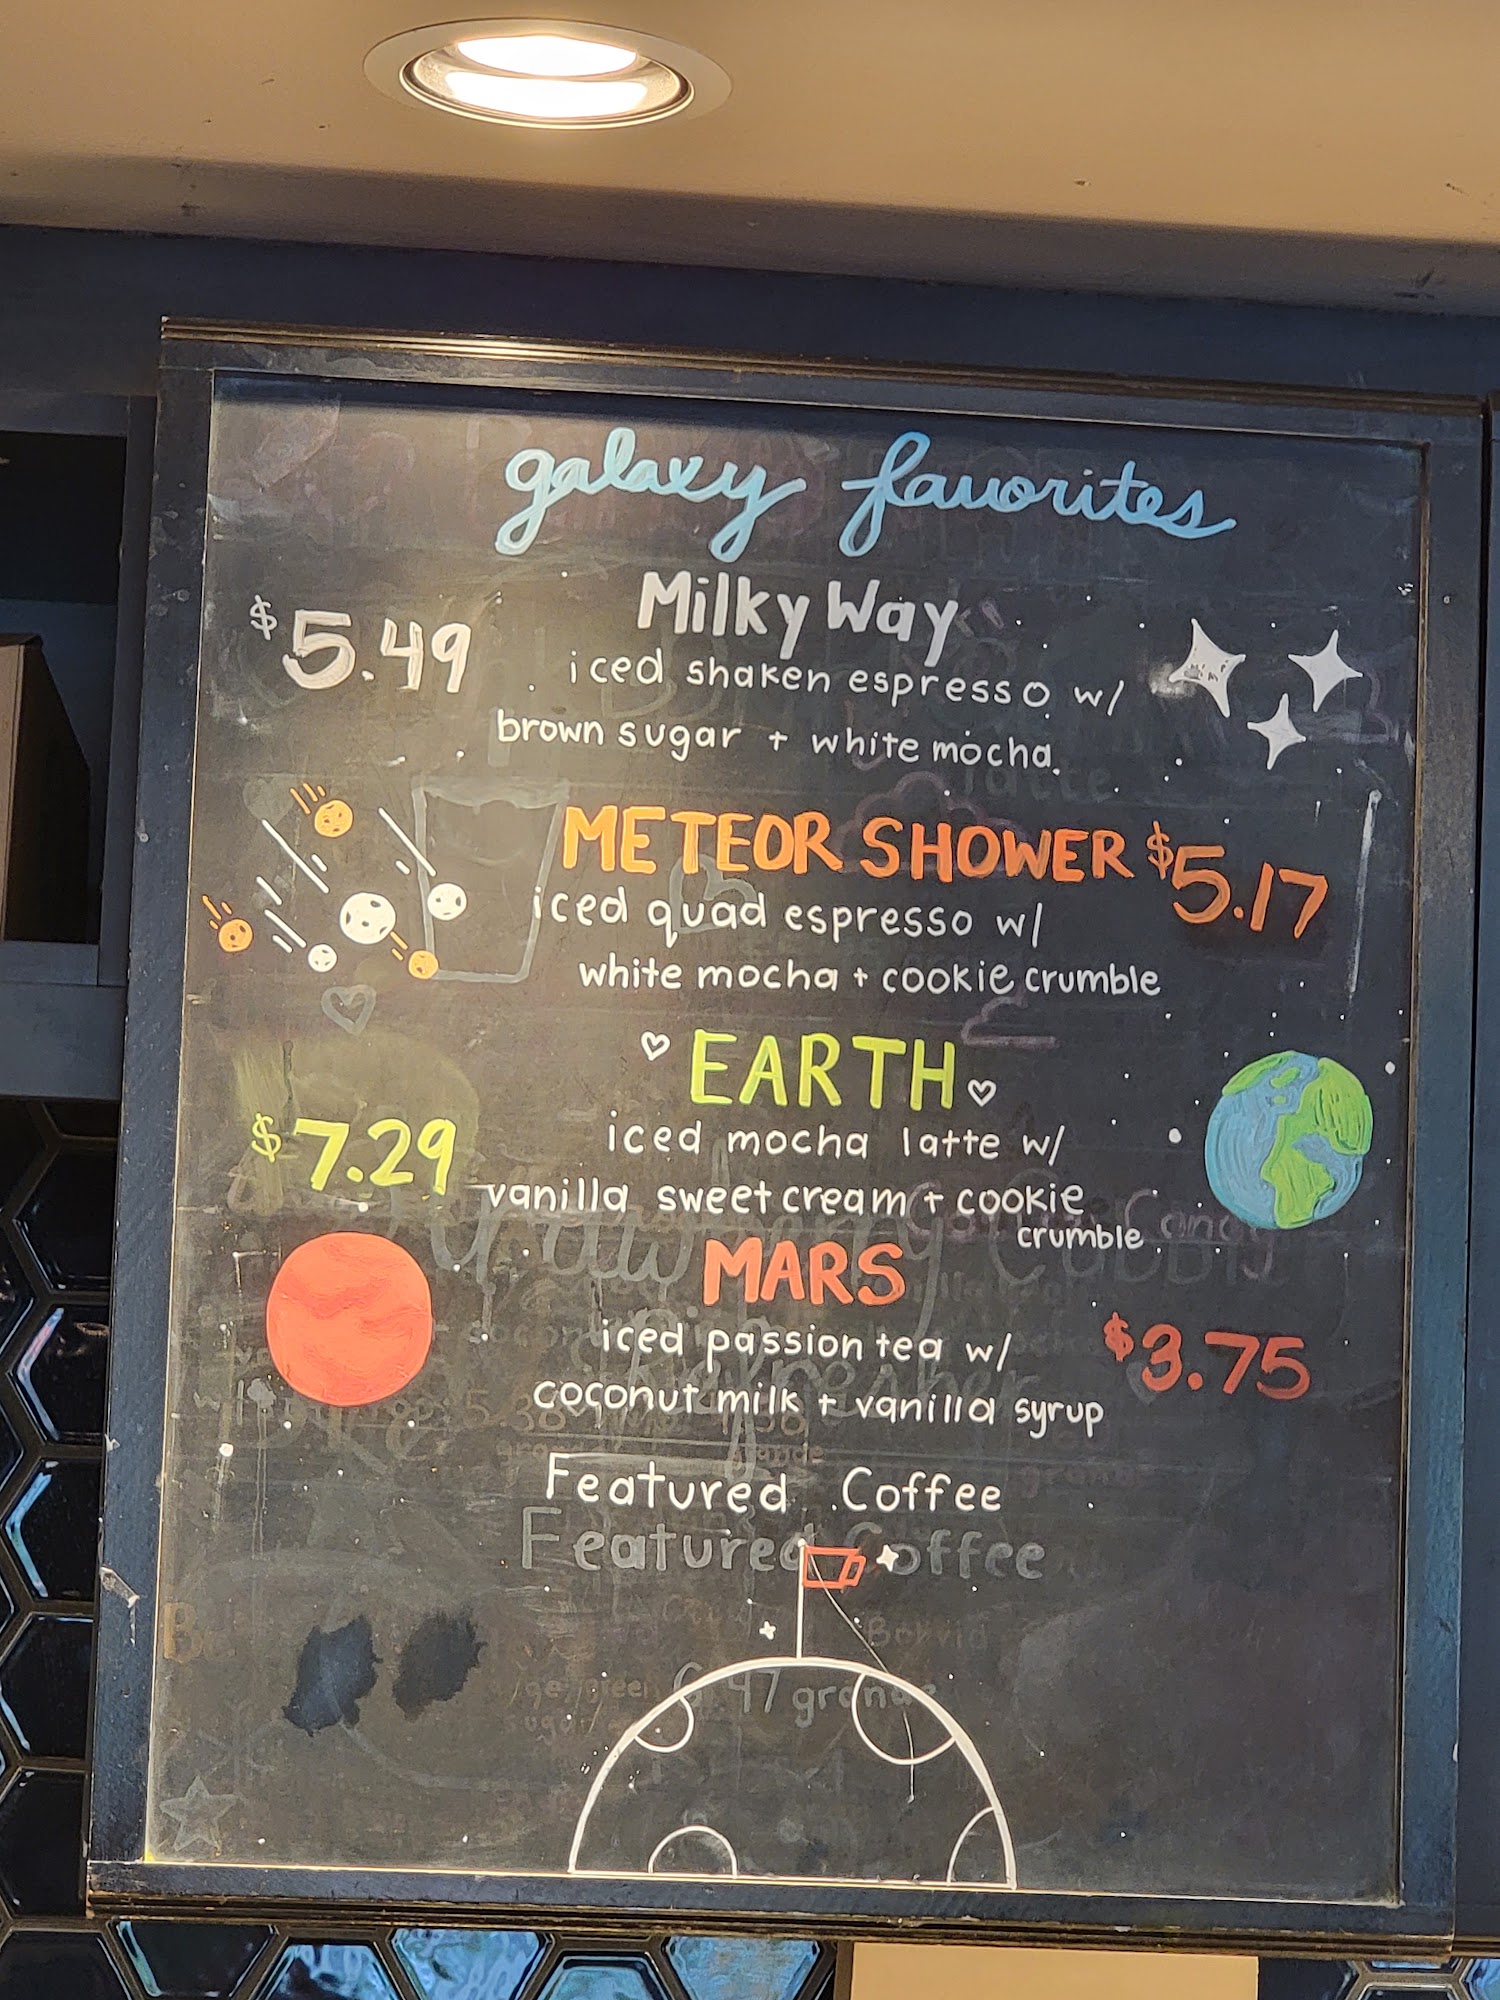 galaxy favorites
Milky Way
$5.49
iced shaken espresso w/
brown sugar + white mocha
METEOR SHOWER $5.17
iced quad espresso w/
white mocha + cookie crumble
EARTH
$7.29
iced mocha latte w/
vanilla sweet cream + cookie
crumble
MARS
iced passion tea w/
$3.75
coconut milk + vanilla syrup
Featured Coffee
Featured Coffee